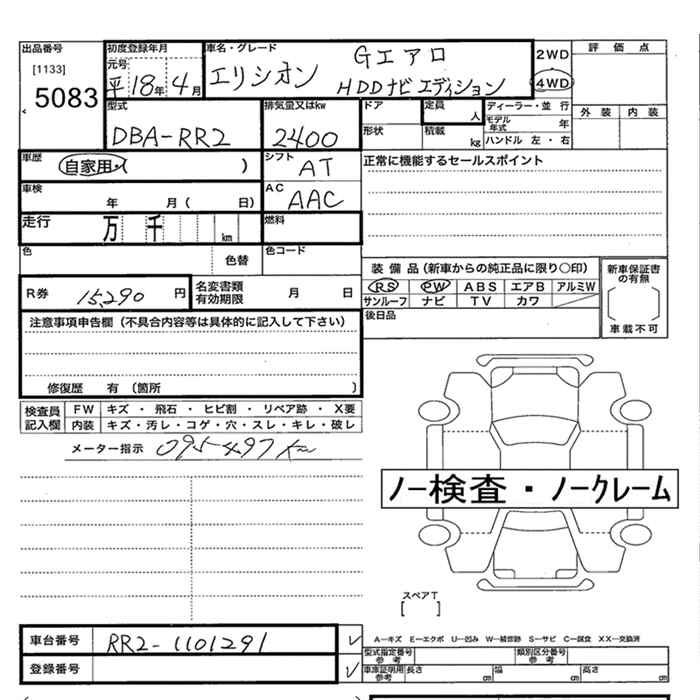 出品番号 初度登録年月 車名・グレード 2WD 評価点
[1133] 元号 Gエアロ
5083 平18年4月 エリシオン HDDナビエディション 4WD
型式 排気量又はkw ドア 定員 人 ディーラー・並行 外装 内装
DBA-RR2 2400 形状 積載 kg モデル年式 年
ハンドル 左・右
車歴 自家用・( ) シフト AT 正常に機能するセールスポイント
車検 年 月( 日) AC AAC
走行 万 千 km 燃料
色 色替 色コード
装備品(新車からの純正品に限り○印) 新車保証書の有無
R券 15,290 円 名変書類有効期限 月 日 RS PW ABS エアB アルミW
サンルーフ ナビ TV カワ [ ]
注意事項申告欄(不具合内容等は具体的に記入して下さい) 後日品 車載不可
修復歴 有(箇所 )
検査員記入欄 FW キズ・飛石・ヒビ割・リペア跡・X要
内装 キズ・汚レ・コゲ・穴・スレ・キレ・破レ
メーター指示 095497km
ノー検査・ノークレーム
スペアT
[ ]
車台番号 RR2-1101291 A-キズ E-エクボ U-凹み W-補修跡 S-サビ C-腐食 XX-交換済
型式指定番号参考 類別区分番号参考
登録番号 車庫証明用参考 長さ cm 幅 cm 高さ cm